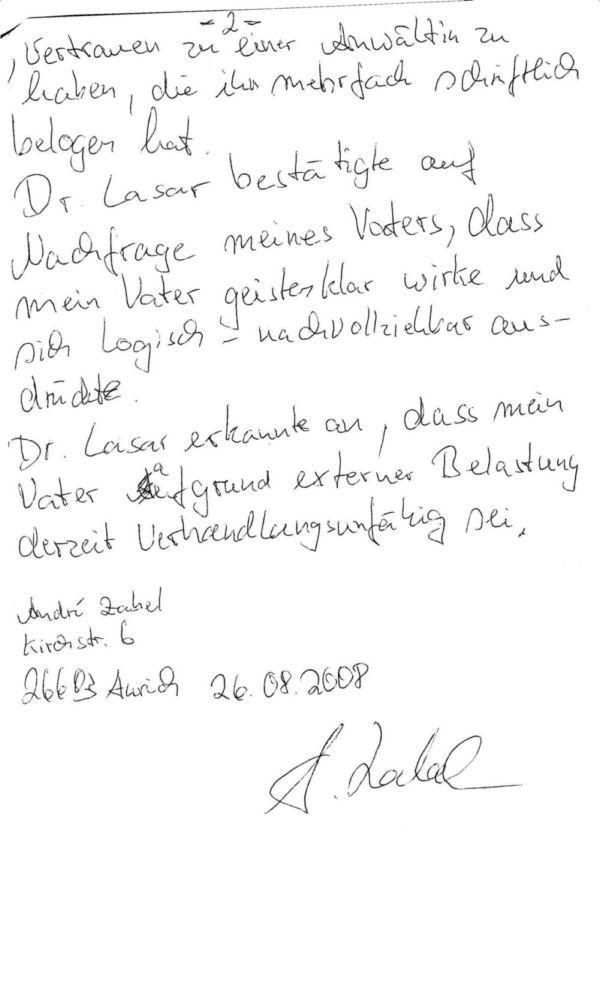 - 2 -
, Vertrauen zu einer Anwältin zu
haben, die ihn mehrfach schriftlich
belogen hat.
Dr. Lasar bestätigte auf
Nachfrage meines Vaters, dass
mein Vater geistesklar wirke und
sich logisch - nachvollziehbar aus-
drückte.
Dr. Lasar erkannte an, dass mein
Vater aufgrund externer Belastung
derzeit Verhandlungsunfähig sei.
André Zabel
Kirchstr. 6
26603 Aurich 26.08.2008
A. Zabel